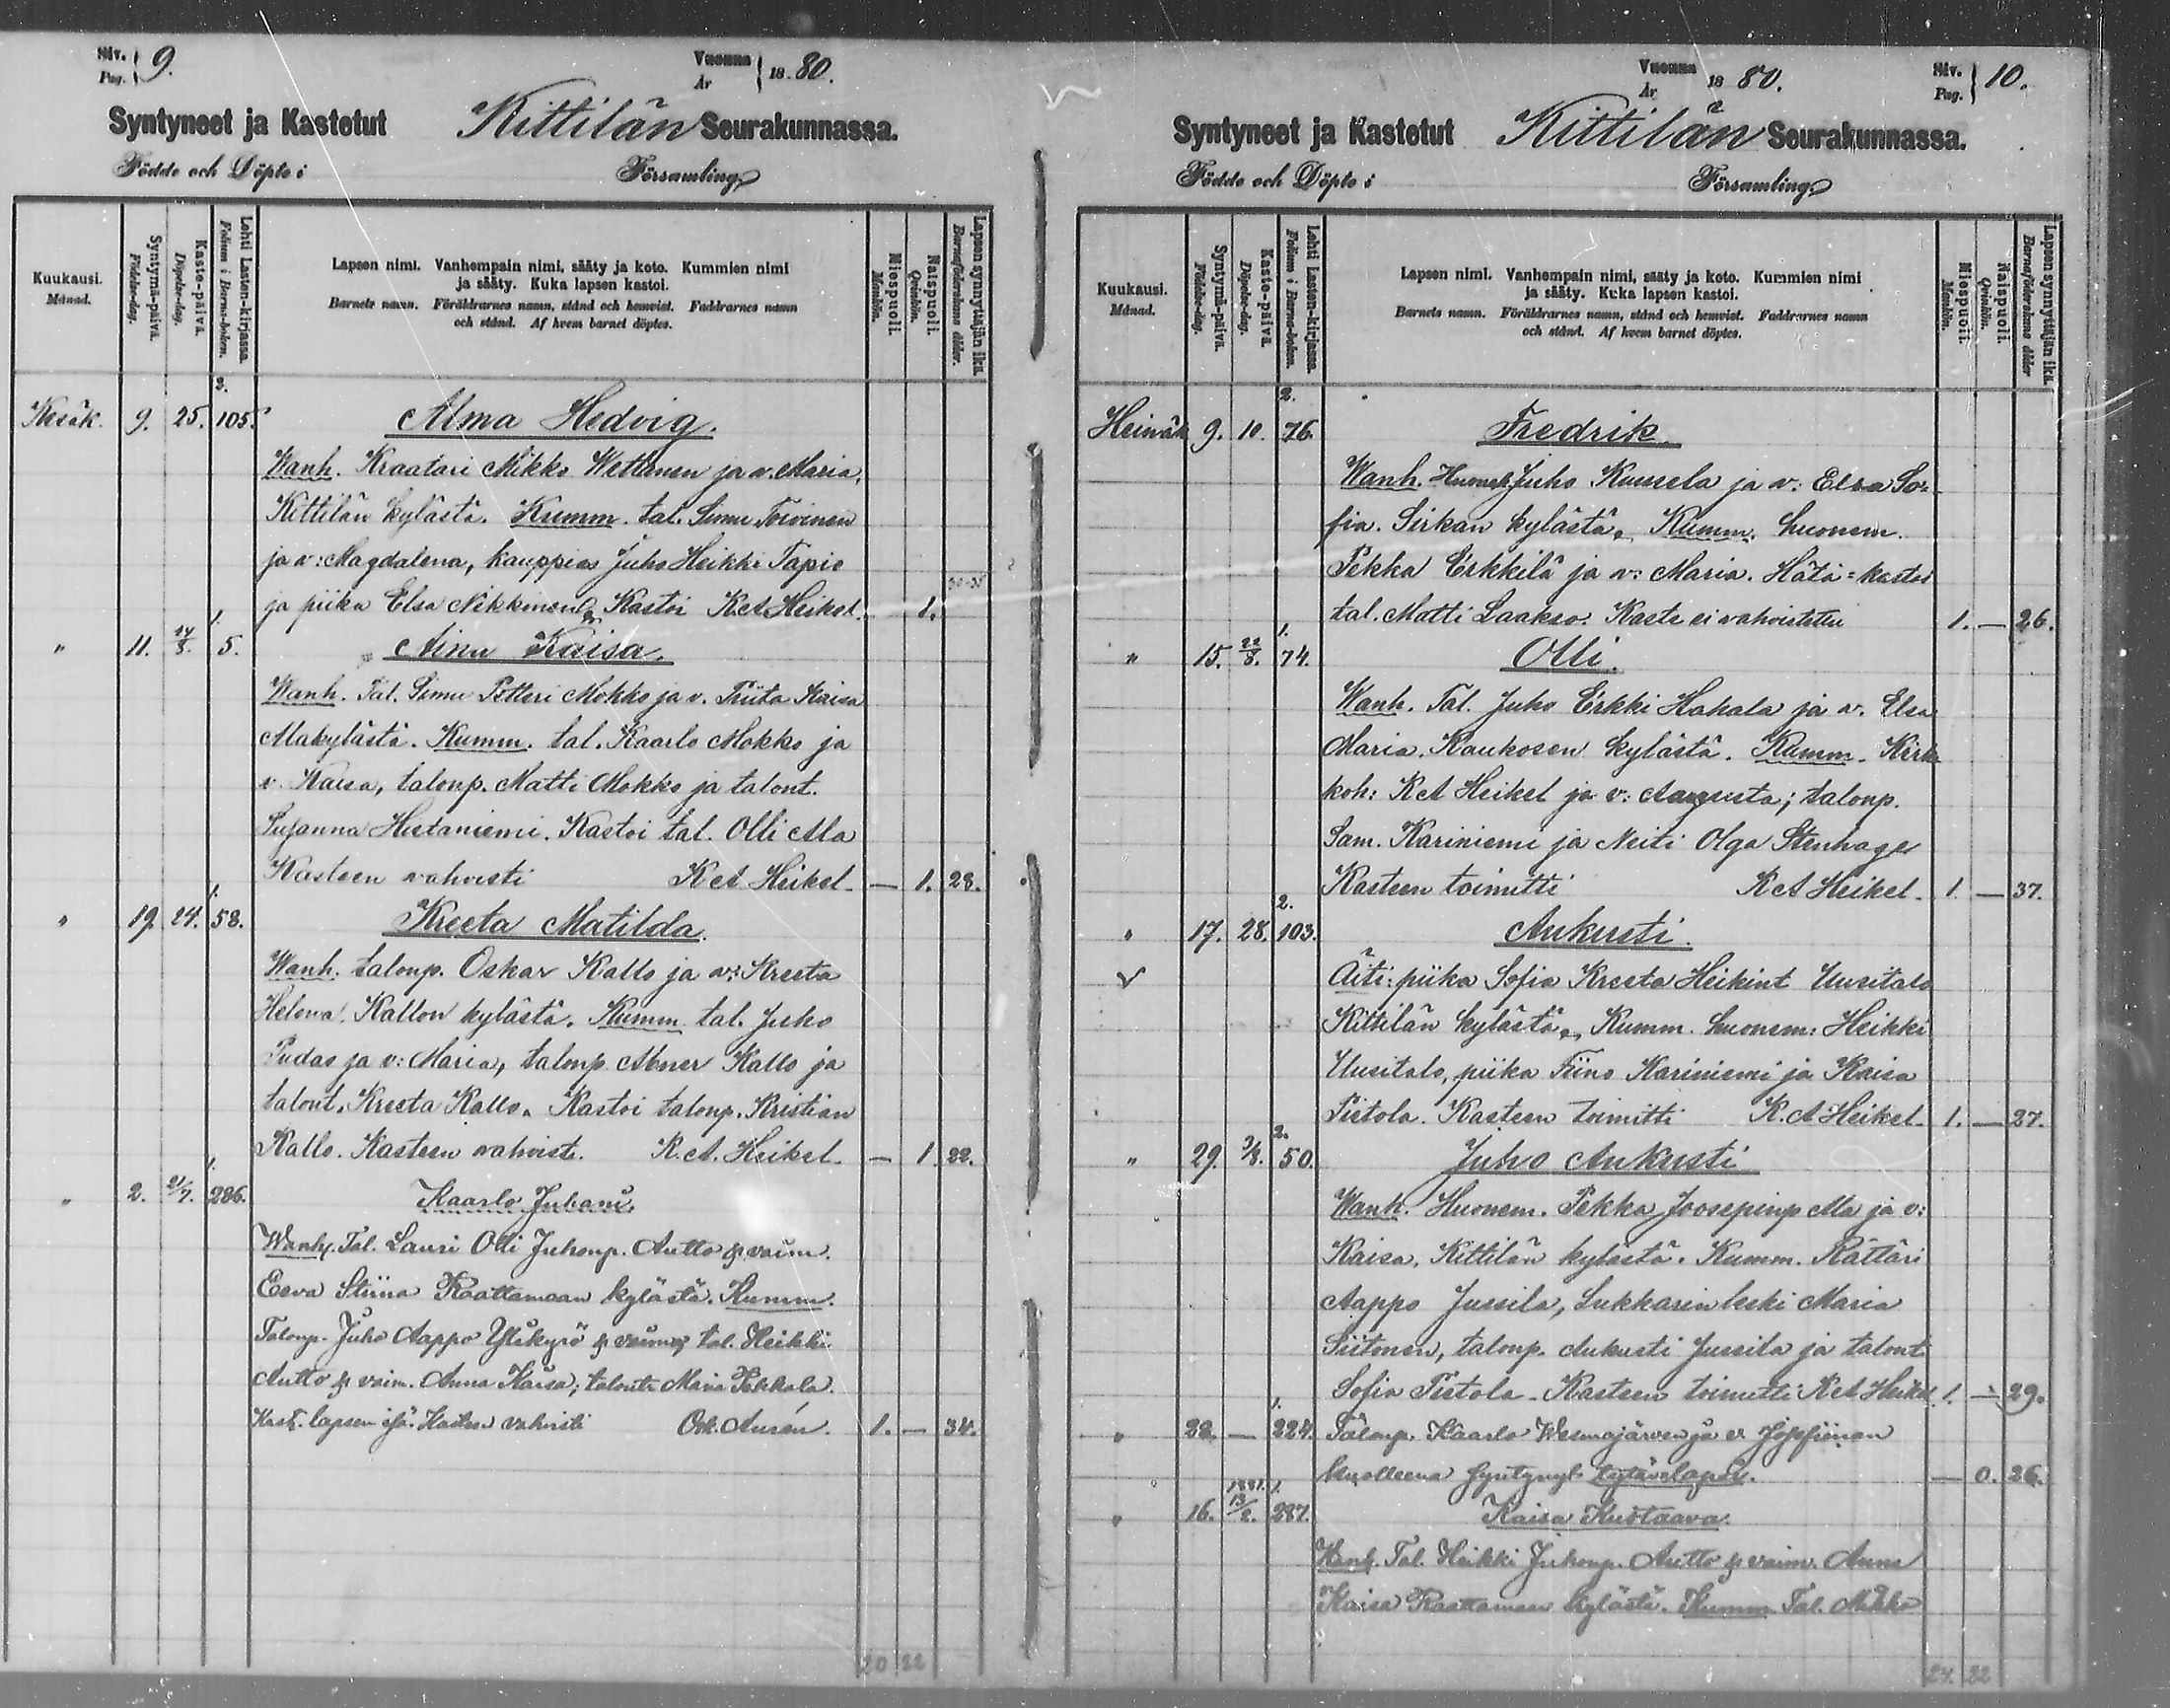 Siv. Pag. 9.
Vuonna År 18 80.
Syntyneet ja Kastetut Kittilän Seurakunnassa.
Födde och Döpte i Församling
Kuukausi. Månad.
Syntymä-päivä. Födelse-dag.
Kaste-päivä. Döpelse-dag.
Lehti Lasten-kirjassa. Folium i Barna-boken.
Lapsen nimi. Vanhempain nimi, sääty ja koto. Kummien nimi
ja sääty. Kuka lapsen kastoi.
Barnets namn. Föräldrarnes namn, stånd och hemvist. Faddrarnes namn
och stånd. Af hvem barnet döptes.
Miespuoli. Mankön.
Naispuoli. Qvinkön.
Lapsen synnyttäjän ikä. Barnaföderskans ålder.
Kesäk. 9. 25. 105. Alma Hedvig.
Wanh. Kraatari Mikko Wettanen ja v. Maria,
Kittilän kylästä. Kumm. tal. Simu Toivinen
ja v: Magdalena, kauppias Juho Heikki Tapio
30-35
ja piika Elsa Nikkinen. Kastoi K A Heikel. — 1.
" 11. 14/8. 1. 5. Ainu Kaisa.
Wanh. Tal. Simu Petteri Mokko ja v. Triita Kaisa
Alakylästä. Kumm. tal. Kaarlo Mokko ja
v. Kaisa, talonp. Matti Mokko ja talont.
Susanna Hietaniemi. Kastoi tal. Olli Ala
Kasteen vahvisti K A Heikel. — 1. 28.
" 19. 24. 1. 58. Kreeta Matilda.
Wanh. talonp. Oskar Kallo ja v: Kreeta
Helena. Kallon kylästä. Kumm. tal. Juho
Pudas ja v: Maria, talonp. Abner Kallo ja
talont. Kreeta Kallo. Kastoi talonp. Kristian
Kallo. Kasteen vahvist. K. A. Heikel. — 1 22.
" 2. 21/7. 1. 286. Kaarlo Juhani.
Wanh. Tal. Lauri Olli Juhonp. Autto & vaim.
Eeva Stiina Raattamaan kylästä. Kumm.
Talonp. Juho Aappo Ylikyrö & vaimo; tal. Heikki
Autto & vaim. Anna Kaisa; talont. Maria Pekkala.
Kast. lapsen isä. Kasteen vahvisti Osk. Aurén. 1. — 34.
20 22
Vuonna År 18 80.
Siv. Pag. 10.
Syntyneet ja Kastetut Kittilän Seurakunnassa.
Födde och Döpte i Församling
Kuukausi. Månad.
Syntymä-päivä. Födelse-dag.
Kaste-päivä. Döpelse-dag.
Lehti Lasten-kirjassa. Folium i Barna-boken.
Lapsen nimi. Vanhempain nimi, sääty ja koto. Kummien nimi
ja sääty. Kuka lapsen kastoi.
Barnets namn. Föräldrarnes namn, stånd och hemvist. Faddrarnes namn
och stånd. Af hvem barnet döptes.
Miespuoli. Mankön.
Naispuoli. Qvinkön.
Lapsen synnyttäjän ikä. Barnaföderskans ålder
Heinäk 9. 10. 2. 76. Fredrik
Wanh. Huonem. Juho Kuusela ja v: Elsa So-
fia. Sirkan kylästä. Kumm. huonem.
Pekka Erkkilä ja v: Maria. Hätä=kastoi
tal. Matti Laakso. Kaste ei vahvistettu 1. — 26.
" 15. 22/8. 1. 74. Olli.
Wanh. Tal. Juho Erkki Hakala ja v. Elsa
Maria. Kaukosen kylästä. Kumm. Kirk
koh: K A Heikel ja v: Augusta; talonp.
Sam. Kariniemi ja Neiti Olga Stenhage
Kasteen toimitti K A Heikel. 1. — 37.
" 17. 28. 2. 103. Aukusti.
Äiti: piika Sofia Kreeta Heikint Uusitalo
Kittilän kylästä. Kumm. huonem: Heikki
Uusitalo, piika Tiina Kariniemi ja Kaisa
Pistola. Kasteen toimitti K. A Heikel. 1. — 27.
" 29. 3/8. 2. 50. Juho Aukusti
Wanh. Huonem. Pekka Joosepinp Ala ja v:
Kaisa, Kittilän kylästä. Kumm. Rättäri
Aappo Jussila, Lukkarin leski Maria
Siitonen, talonp. Aukusti Jussila ja talont
Sofia Pistola. Kasteen toimitti K A Heikel 1. — 29.
" 22. — 1. 224. Talonp. Kaarlo Wesmajärven ja v. Josefiinan
kuolleena syntynyt tytärlapsi. — 0. 26.
" 16. 1881. 13/2. 1. 287. Kaisa Kustaava.
Wanh. Tal. Heikki Juhonp. Autto & vaim. Anna
Kaisa Raattamaan kylästä. Kumm Tal. Mikko
24. 22